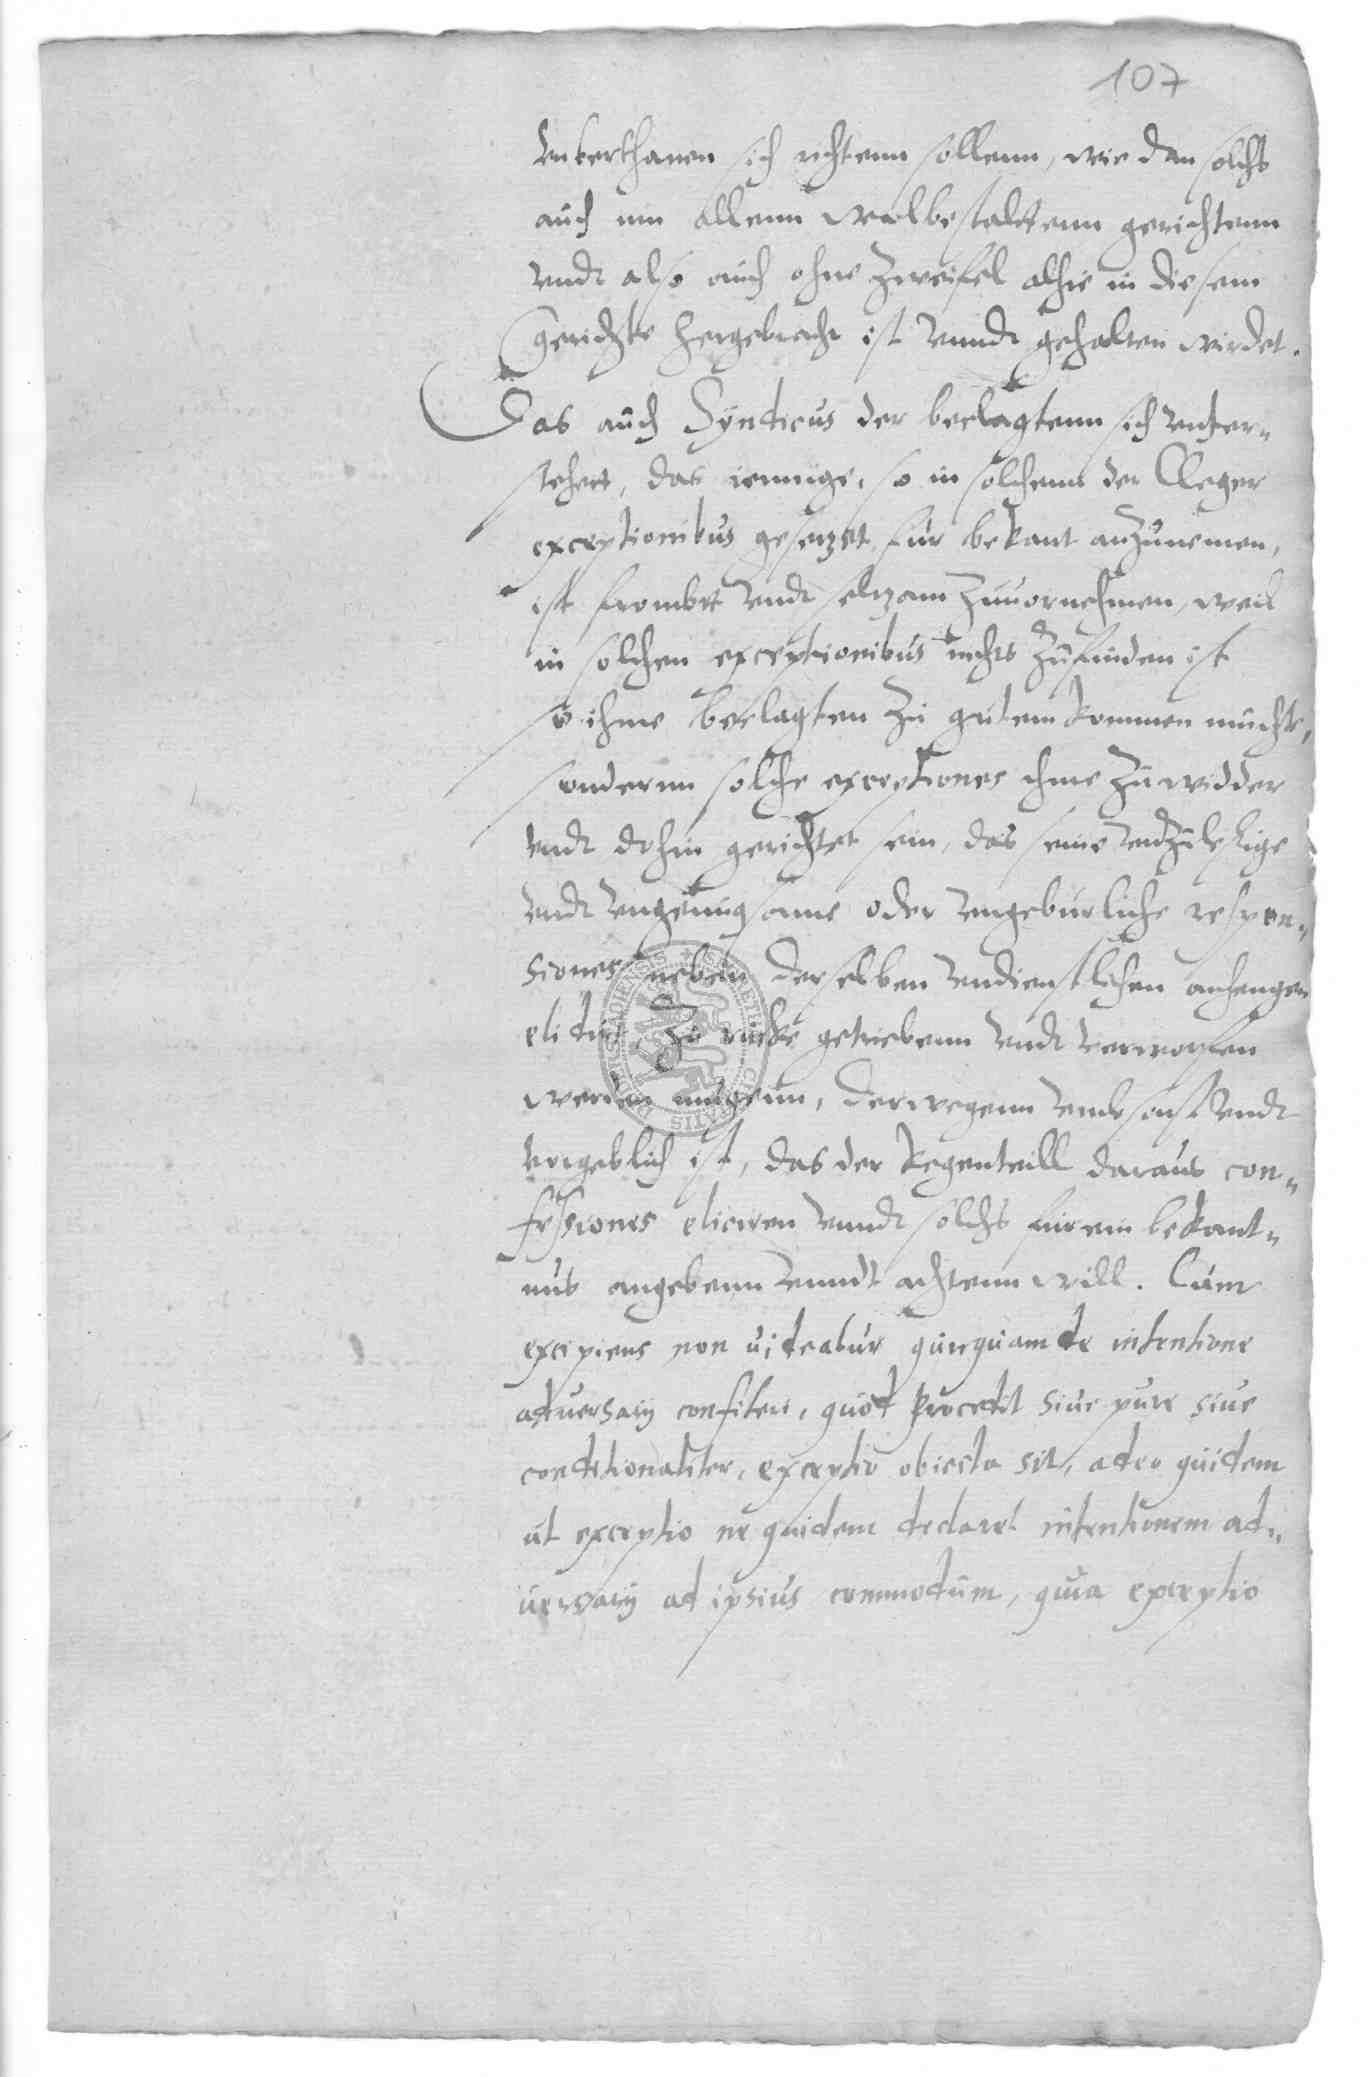 107
Vnterthanen sich richtenn sollenn, wie dan solchs
auch inn allenn wolbestaltenn gerichtenn
vndt also auch ohne Zweifel alhie in diesem
gerichte hergebracht ist vnndt gehalten wirdet.
Das auch Syndicus der beclagtenn sich vnter„
stehett, das iennige, so in solchenn der Cleger
exceptionibus gesetzet, für bekant anzunemen,
ist frombt vndt seltzam Zuuornehmen, weil
in solchen exceptionibus nichts Zufinden ist
so ihme beclagten Zu gutem kommen muchte,
sondernn solche exceptiones ihme Zuwidder
vndt dohin gerichtet sein, das seine vnzulessige
vndt vngenugsame oder vngeburliche respon„
siones neben derselben vndienstlichen anhengen
elidirt, Zu rucke getriebenn vndt verworfen
werden mugenn, derwegenn vmbsonst vndt
vorgeblich ist, das der kegenteill daraus con„
fessiones eliciren vnndt solchs für ein bekant„
nus angebenn vnndt achtenn will. Cum
excipiens non uideatur quicquam de intentione
aduersarij confiteri, quod procedit siue pure siue
conditionaliter, exceptio obiecta sit, adeo quidem
ut exceptio ne quidem declaret intentionem ad„
uersarij ad ipsius commodum, quia exceptio